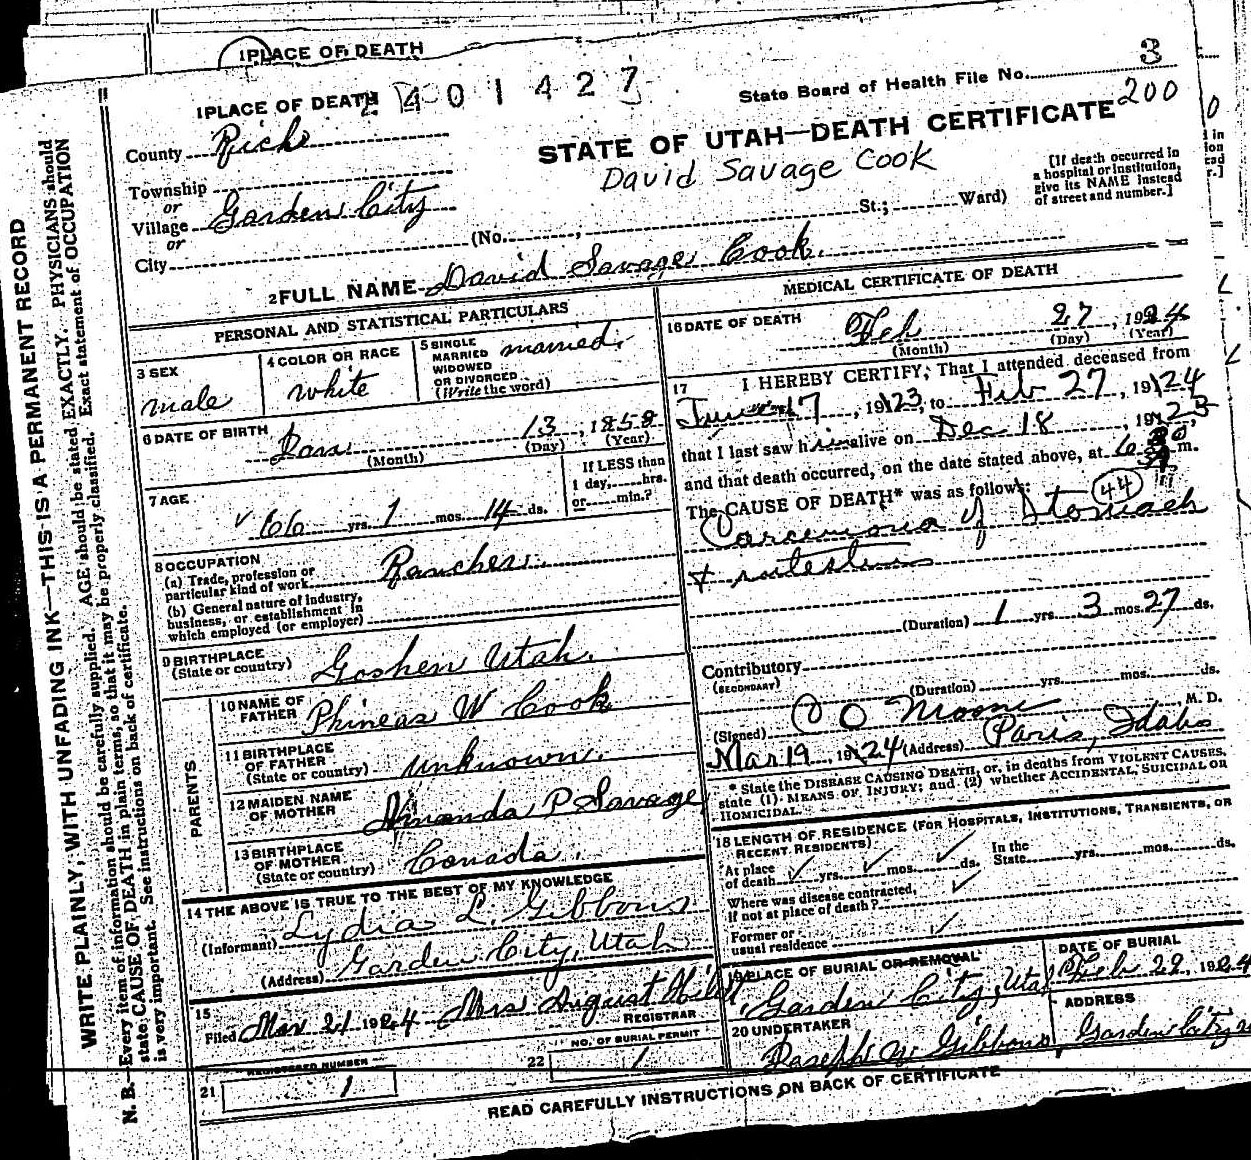 1 PLACE OF DEATH
1 PLACE OF DEATH
2401427
State Board of Health File No. 3
200
STATE OF UTAH—DEATH CERTIFICATE
David Savage Cook
County Rich
Township
or
Village Garden City
or
City (No. , St.; Ward)
[If death occurred in
a hospital or institution,
give its NAME instead
of street and number.]
2 FULL NAME David Savage Cook.
PERSONAL AND STATISTICAL PARTICULARS
3 SEX
male
4 COLOR OR RACE
white
5 SINGLE
MARRIED
WIDOWED
OR DIVORCED
(Write the word)
married.
6 DATE OF BIRTH
Jan 13, 1858
(Month) (Day) (Year)
7 AGE
66 yrs. 1 mos. 14 ds.
If LESS than
1 day, hrs.
or min.?
8 OCCUPATION
(a) Trade, profession or
particular kind of work Rancher.
(b) General nature of industry,
business, or establishment in
which employed (or employer)
9 BIRTHPLACE
(State or country) Goshen Utah.
PARENTS
10 NAME OF
FATHER Phineas W Cook
11 BIRTHPLACE
OF FATHER
(State or country) unknown.
12 MAIDEN NAME
OF MOTHER Amanda P Savage
13 BIRTHPLACE
OF MOTHER
(State or country) Canada.
14 THE ABOVE IS TRUE TO THE BEST OF MY KNOWLEDGE
(Informant) Lydia L. Gibbons
(Address) Garden City, Utah
15
Filed Mar 21 1924 Mrs August Hildt
REGISTRAR
REGISTERED NUMBER
21 1
22 NO. OF BURIAL PERMIT
1
MEDICAL CERTIFICATE OF DEATH
16 DATE OF DEATH
Feb 27, 1924
(Month) (Day) (Year)
17 I HEREBY CERTIFY, That I attended deceased from
June 17, 1923, to Feb 27, 1924
that I last saw him alive on Dec 18, 1923,
and that death occurred, on the date stated above, at 6 m.
The CAUSE OF DEATH* was as follows:
44
Carcenoma of Stomach
+ intestines
(Duration) 1 yrs. 3 mos. 27 ds.
Contributory
(SECONDARY)
(Duration) yrs. mos. ds.
(Signed) C O Moore, M. D.
Mar 19, 1924 (Address) Paris, Idaho
* State the DISEASE CAUSING DEATH, or, in deaths from VIOLENT CAUSES,
state (1) MEANS OF INJURY; and (2) whether ACCIDENTAL, SUICIDAL OR
HOMICIDAL.
18 LENGTH OF RESIDENCE (FOR HOSPITALS, INSTITUTIONS, TRANSIENTS, OR
RECENT RESIDENTS)
At place
of death yrs. mos. ds.
In the
State yrs. mos. ds.
Where was disease contracted,
if not at place of death?
Former or
usual residence
19 PLACE OF BURIAL OR REMOVAL
Garden City, Utah
DATE OF BURIAL
Feb 29, 1924
20 UNDERTAKER
Joseph N. Gibbons,
ADDRESS
Garden City
READ CAREFULLY INSTRUCTIONS ON BACK OF CERTIFICATE
WRITE PLAINLY, WITH UNFADING INK—THIS IS A PERMANENT RECORD
N. B.—Every item of information should be carefully supplied. AGE should be stated EXACTLY. PHYSICIANS should
state CAUSE OF DEATH in plain terms, so that it may be properly classified. Exact statement of OCCUPATION
is very important. See instructions on back of certificate.